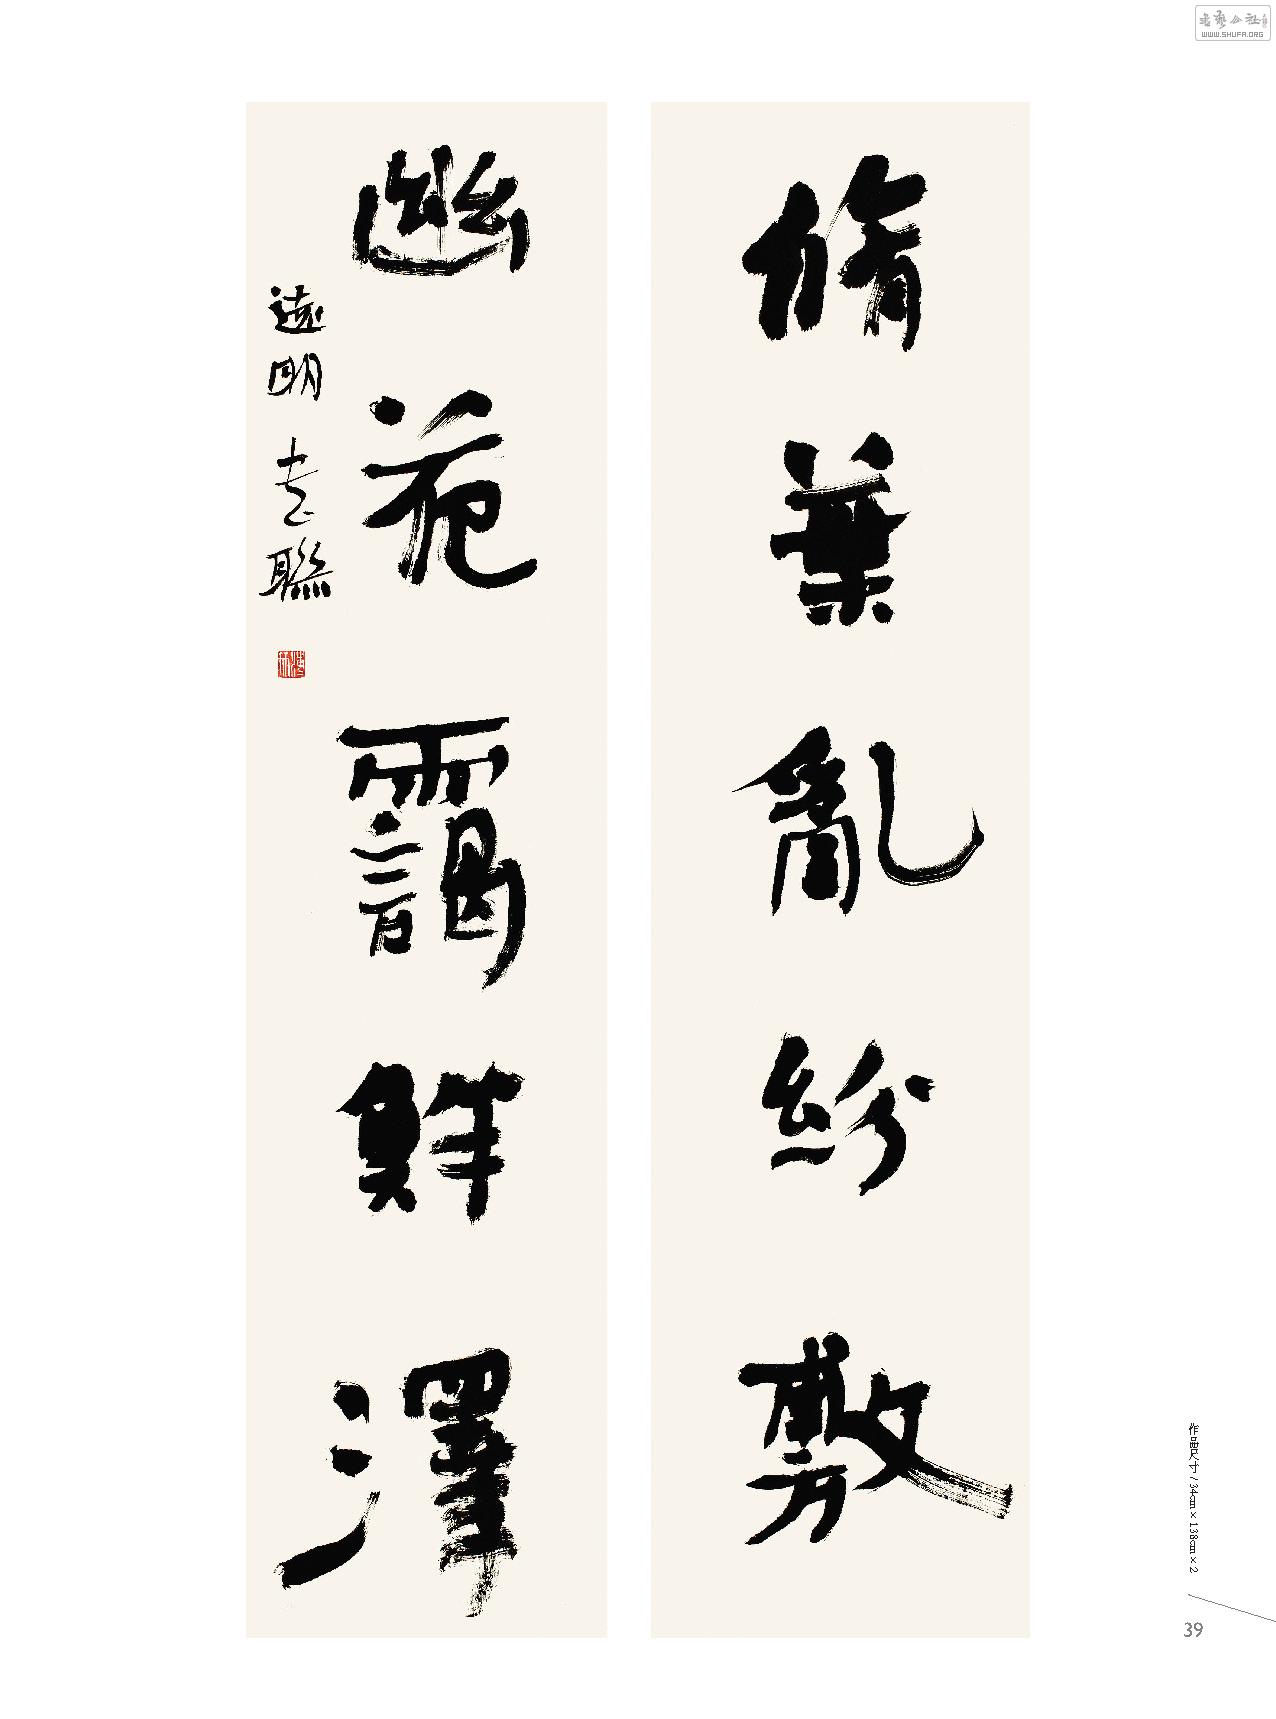 脩葉亂紛敷
幽花靄鮮澤
遠明 書聯
作品尺寸 / 34cm × 138cm × 2
39
WWW.SHUFA.ORG